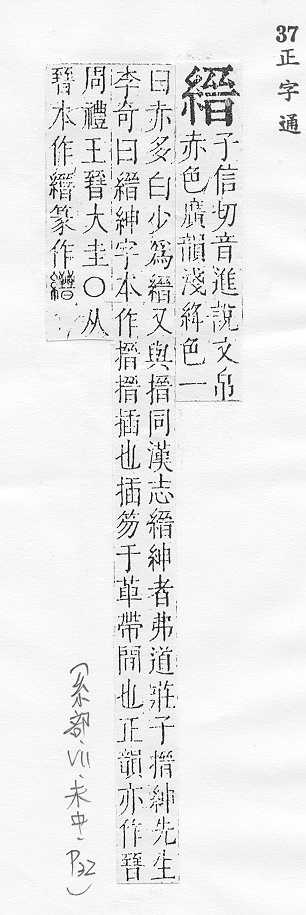 37 正字通
縉
子信切音進說文帛
赤色廣韻淺絳色一
曰亦多白少爲縉又與搢同漢志縉紳者弗道莊子搢紳先生
李奇曰縉紳字本作搢搢插也插笏于革帶間也正韻亦作晉
周禮王晉大圭○从
晉本作縉篆作
(糸部、VII、未中、P32)